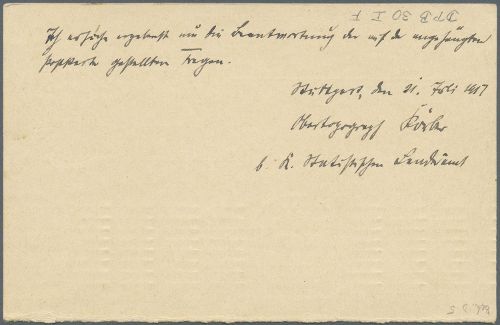 Ich ersuche ergebenst um die Beantwortung der auf der angehängten
Postkarte gestellten Fragen.
Stuttgart, den 21. Juli 1917
Obertopograph
b. K. Statistischen Landesamt
DPB 30 I F